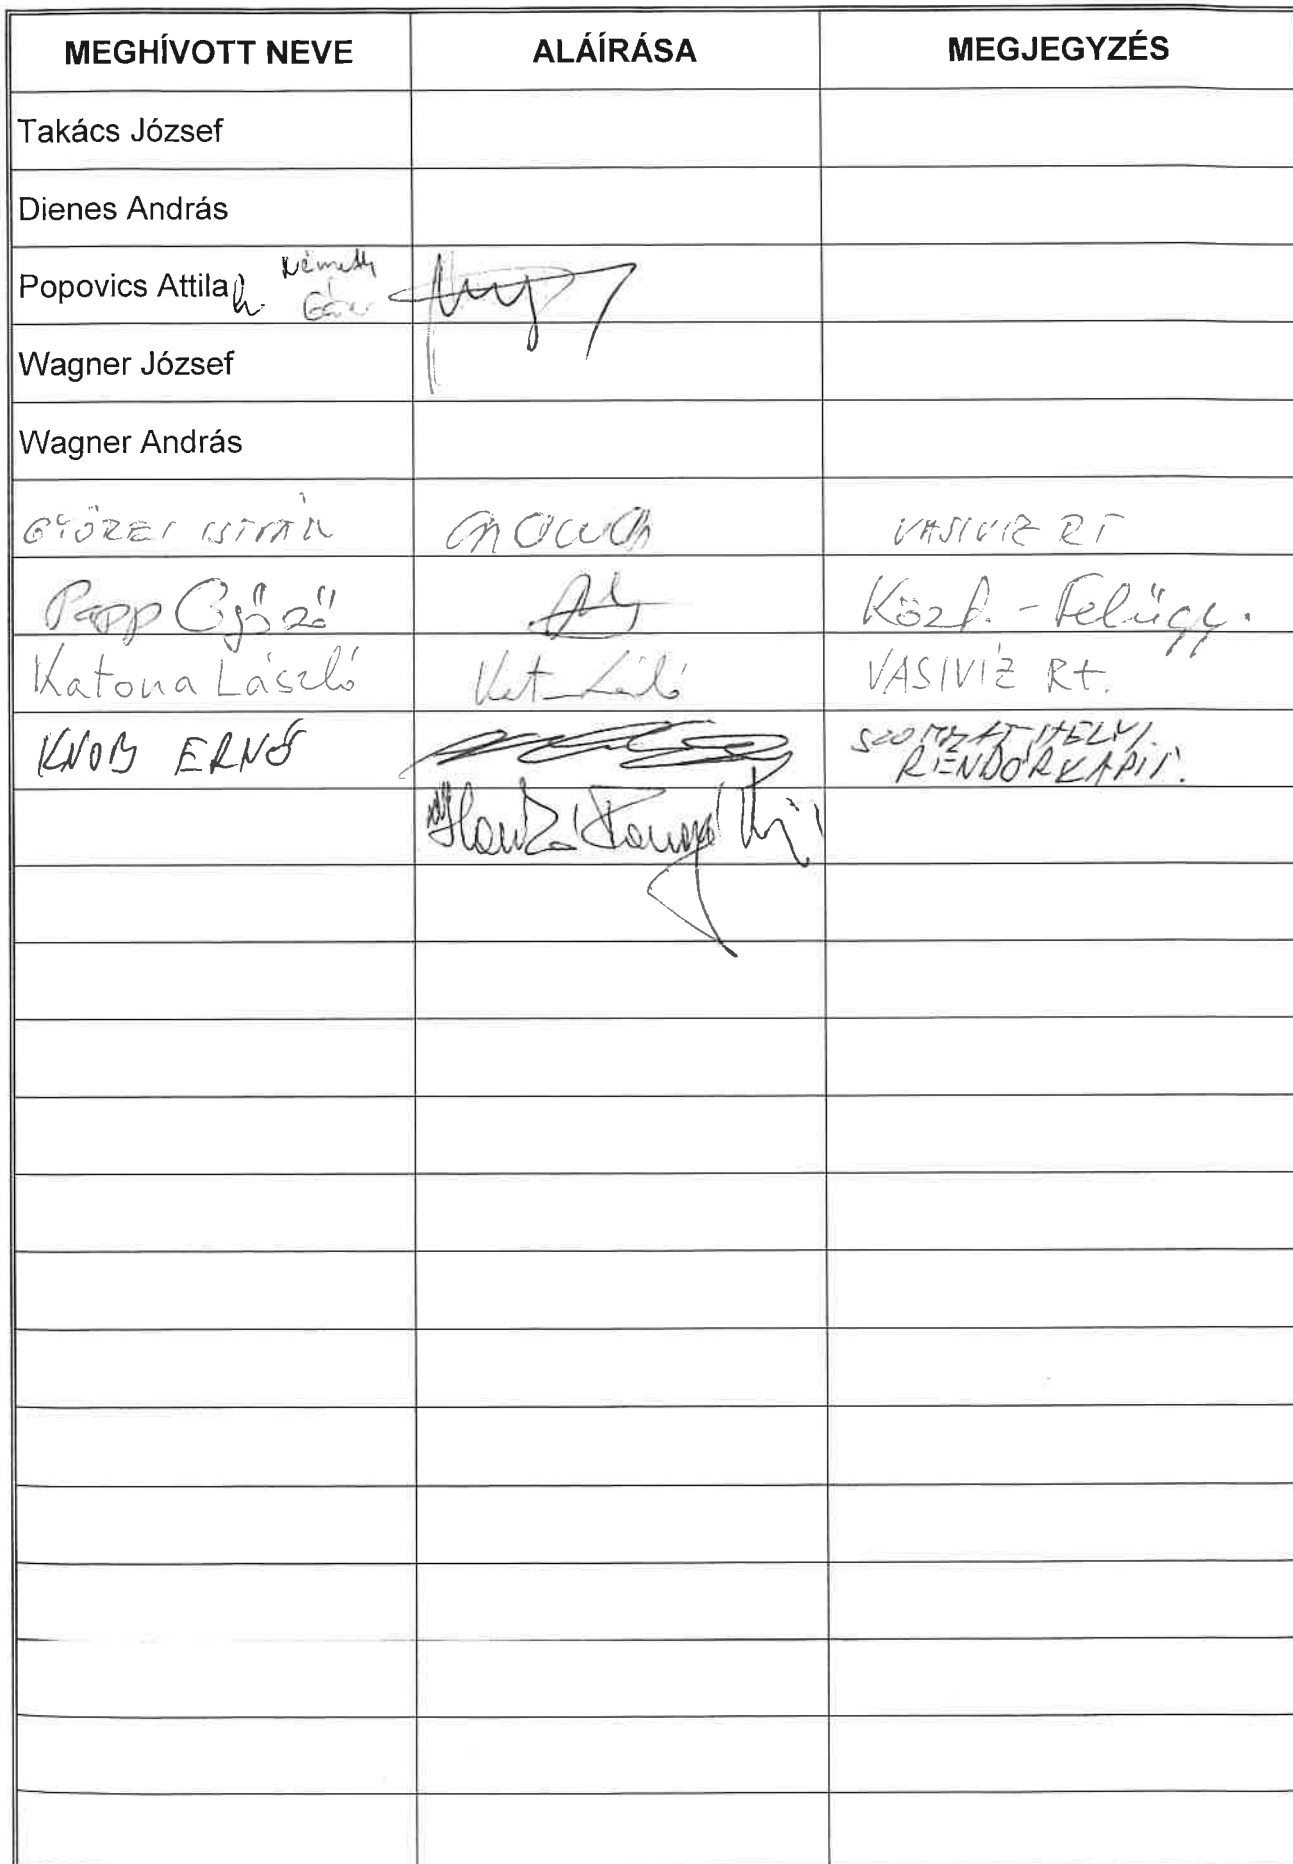 MEGHÍVOTT NEVE ALÁÍRÁSA MEGJEGYZÉS
Takács József
Dienes András
Popovics Attila h. Németh
Wagner József
Wagner András
GYŐREI ISTVÁN VASIVIZ RT
Papp Győző Közl. - Felügy.
Katona László Kat László VASIVIZ Rt.
KNOB ERNŐ SZOMBATHELYI
RENDŐRKAPIT.